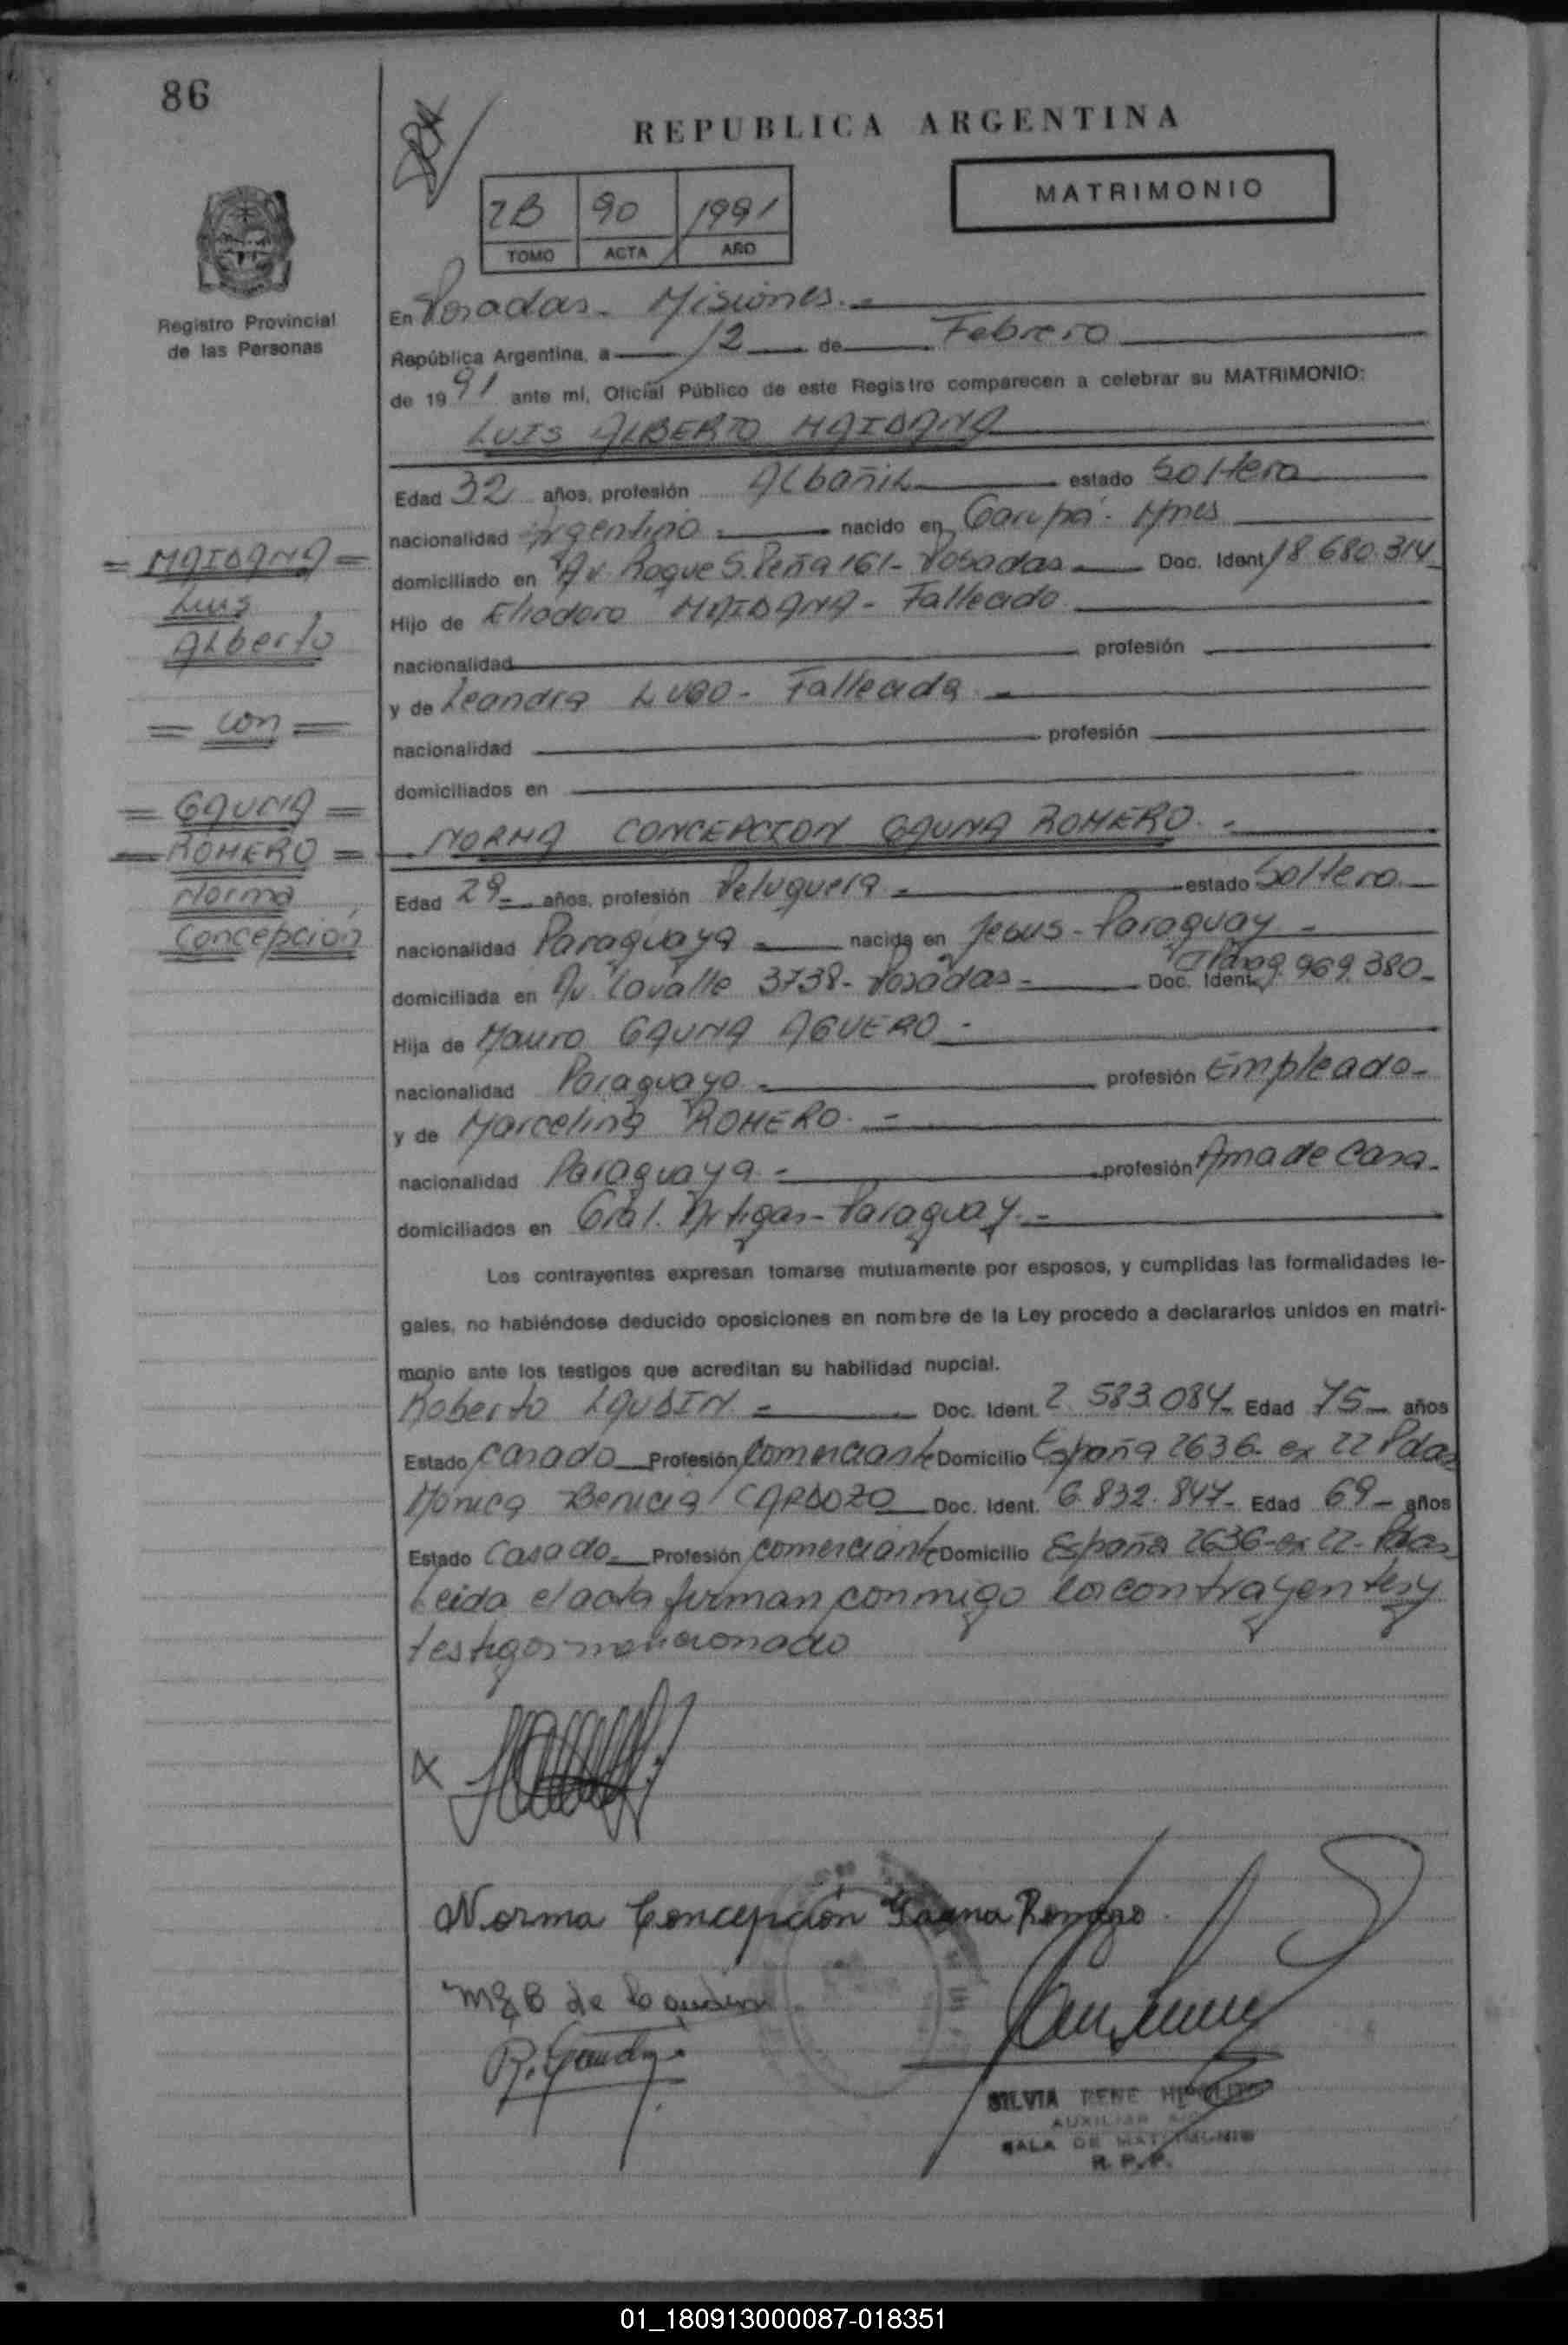 86
REPUBLICA ARGENTINA
MATRIMONIO
2B 90 1991
TOMO ACTA AÑO
Registro Provincial
de las Personas
En Posadas - Misiones.-
República Argentina, a 12 de Febrero
de 1991 ante mi, Oficial Público de este Registro comparecen a celebrar su MATRIMONIO:
LUIS ALBERTO MAIDANA
Edad 32 años, profesión Albañil estado Soltero
nacionalidad Argentino nacido en Garupá - Mnes
domiciliado en Av. Roque S. Peña 161 - Posadas Doc. Ident 18.680.314
Hijo de Eliodoro MAIDANA - Fallecido
nacionalidad profesión
y de Leandra LUGO - Fallecida
nacionalidad profesión
domiciliados en
= MAIDANA =
Luis
Alberto
= con =
= GAUNA =
= ROMERO =
Norma
Concepción
NORMA CONCEPCION GAUNA ROMERO.-
Edad 29 años, profesión Peluquera - estado Soltera
nacionalidad Paraguaya nacida en Jesus - Paraguay -
domiciliada en Av. Lavalle 3738 - Posadas - Doc. Ident. 969.380-
Hija de Mauro GAUNA AGUERO -
nacionalidad Paraguayo - profesión Empleado-
y de Marcelina ROMERO.-
nacionalidad Paraguaya - profesión Ama de Casa-
domiciliados en Gral. Artigas - Paraguay.-
Los contrayentes expresan tomarse mutuamente por esposos, y cumplidas las formalidades le-
gales, no habiéndose deducido oposiciones en nombre de la Ley procedo a declararlos unidos en matri-
monio ante los testigos que acreditan su habilidad nupcial.
Roberto LAUDIN - Doc. Ident. 2.583.084- Edad 75 años
Estado Casado Profesión Comerciante Domicilio España 2636- ex 22 Pdas
Monica Benicia CARDOZO Doc. Ident. 6.832.847- Edad 69 años
Estado Casado Profesión comerciante Domicilio España 2636-ex 22- Pdas
Leida el acta firman conmigo los contrayentes y
testigos mencionado
Norma Concepción Gauna Romero
SILVIA RENE HIPOLITO
AUXILIAR
SALA DE MATRIMONIO
R. P. P.
01_180913000087-018351